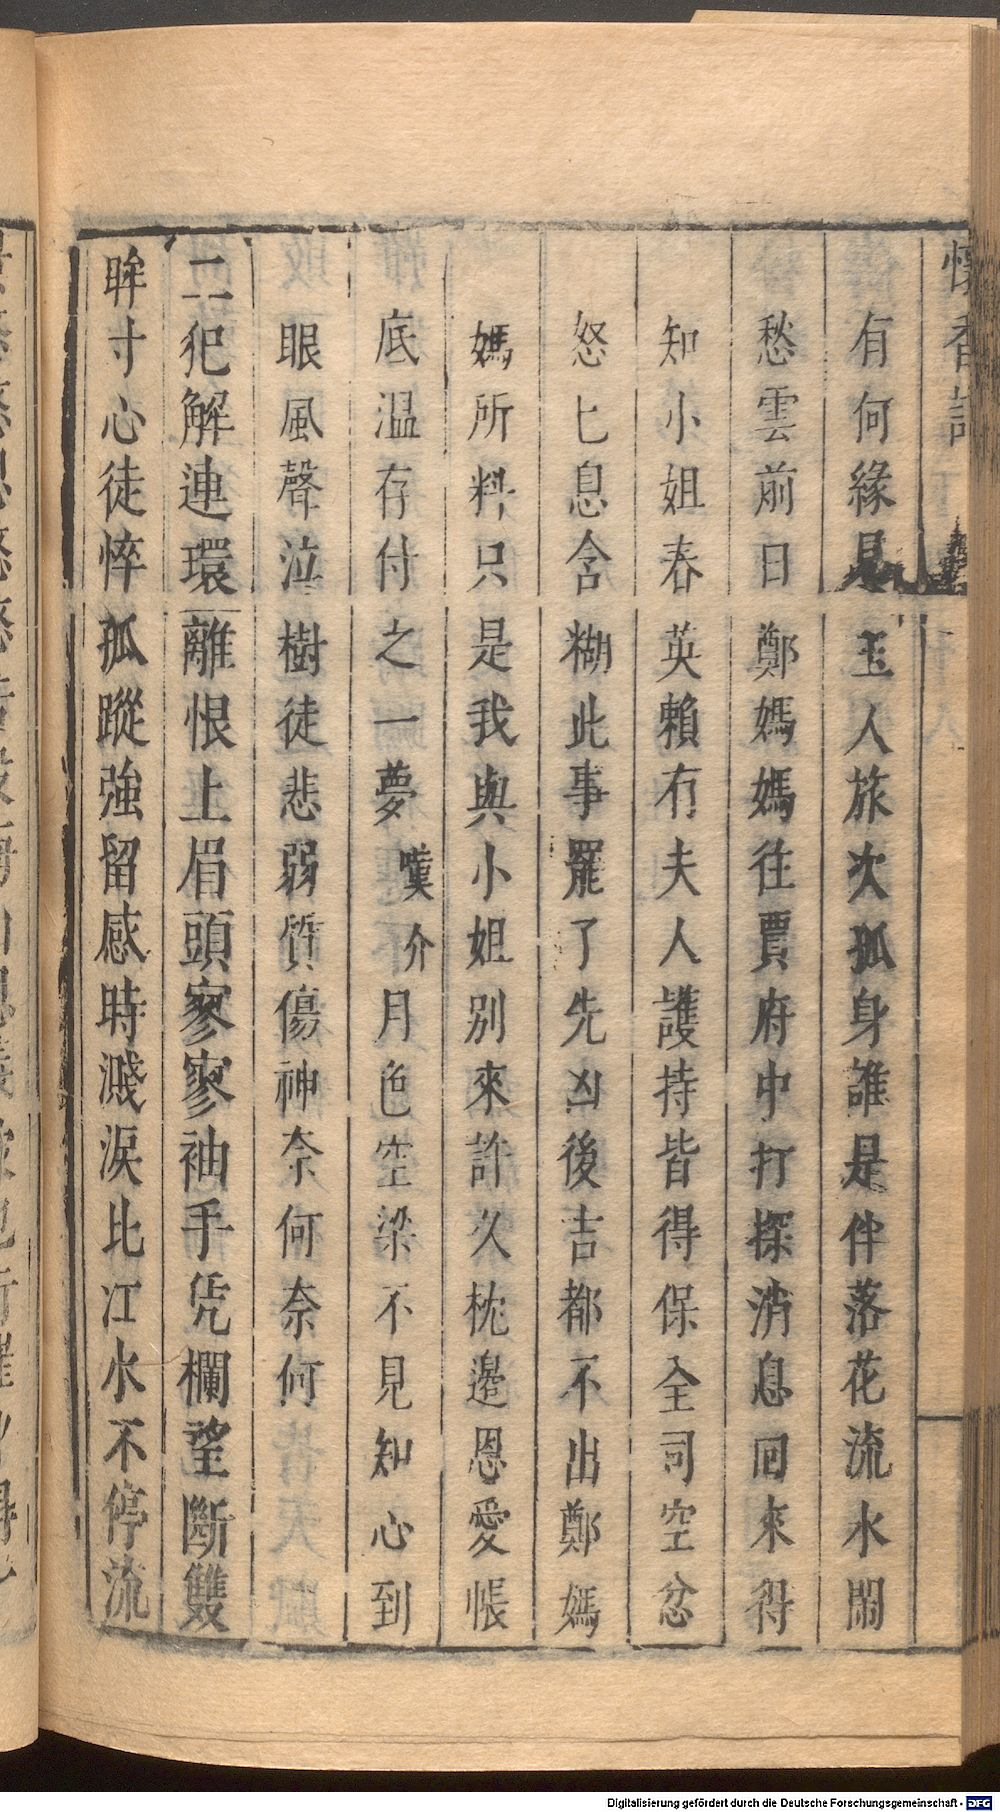 懷香記
有何緣是玉人旅次孤身誰是伴落花流水閙
愁雲前日鄭媽媽往賈府中打探消息回來得
知小姐春英賴有夫人護持皆得保全司空忿
怒匕息含糊此事罷了先凶後吉都不出鄭媽
媽所料只是我與小姐別來許久枕邊恩愛帳
底温存付之一夢嘆介月色空梁不見知心到
眼風聲泣樹徒悲弱質傷神奈何奈何
二犯解連環離恨上眉頭寥寥袖手凭欄望斷雙
眸寸心徒悴孤蹤強留感時濺淚比江水不停流
Digitalisierung gefördert durch die Deutsche Forschungsgemeinschaft - DFG